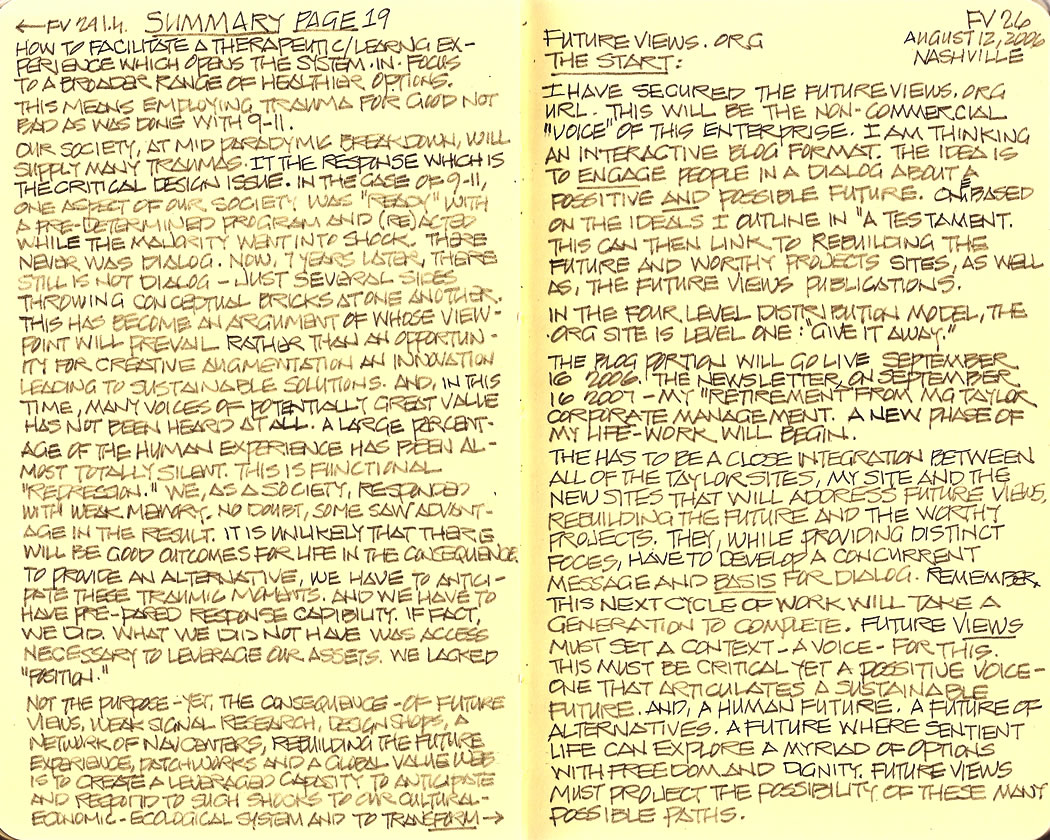 ←FV 24 1.4. SUMMARY PAGE 19
HOW TO FACILITATE A THERAPEUTIC/LEARNG EX-
PERIENCE WHICH OPENS THE SYSTEM·IN·FOCUS
TO A BROADER RANGE OF HEALTHIER OPTIONS.
THIS MEANS EMPLOYING TRAUMA FOR GOOD NOT
BAD AS WAS DONE WITH 9-11.
OUR SOCIETY, AT MID PARADYMIC BREAKDOWN, WILL
SUPPLY MANY TRAUMAS. IT THE RESPONSE WHICH IS
THE CRITICAL DESIGN ISSUE. IN THE CASE OF 9-11,
ONE ASPECT OF OUR SOCIETY WAS "READY" WITH
A PRE-DETERMINED PROGRAM AND (RE)ACTED
WHILE THE MAJORITY WENT INTO SHOCK. THERE
NEVER WAS DIALOG. NOW, 7 YEARS LATER, THERE
STILL IS NOT DIALOG - JUST SEVERAL SIDES
THROWING CONCEPTUAL BRICKS AT ONE ANOTHER.
THIS HAS BECOME AN ARGUMENT OF WHOSE VIEW-
POINT WILL PREVAIL RATHER THAN AN OPPORTUN-
ITY FOR CREATIVE AUGMENTATION AN INNOVATION
LEADING TO SUSTAINABLE SOLUTIONS. AND, IN THIS
TIME, MANY VOICES OF POTENTIALLY GREAT VALUE
HAS NOT BEEN HEARD AT ALL. A LARGE PERCENT-
AGE OF THE HUMAN EXPERIENCE HAS BEEN AL-
MOST TOTALLY SILENT. THIS IS FUNCTIONAL
"REPRESSION." WE, AS A SOCIETY, RESPONDED
WITH WEAK MEMORY. NO DOUBT, SOME SAW ADVANT-
AGE IN THE RESULT. IT IS UNLIKELY THAT THERE
WILL BE GOOD OUTCOMES FOR LIFE IN THE CONSEQUENCE.
TO PROVIDE AN ALTERNATIVE, WE HAVE TO ANTICI-
PATE THESE TRAUMIC MOMENTS. AND WE HAVE TO
HAVE PRE-PARED RESPONSE CAPIBILITY. IF FACT,
WE DID. WHAT WE DID NOT HAVE WAS ACCESS
NECESSARY TO LEVERAGE OUR ASSETS. WE LACKED
"POSITION."
NOT THE PURPOSE - YET, THE CONSEQUENCE - OF FUTURE
VIEWS, WEAK SIGNAL RESEARCH, DESIGN SHOPS, A
NETWORK OF NAVCENTERS, REBUILDING THE FUTURE
EXPERIENCE, PATCHWORKS AND A GLOBAL VALUE WEB
IS TO CREATE A LEVERAGED CAPACITY TO ANTICIPATE
AND RESPOND TO SUCH SHOCKS TO OUR CULTURAL-
ECONOMIC-ECOLOGICAL SYSTEM AND TO TRANSFORM →
FV 26
AUGUST 12, 2006
NASHVILLE
FUTUREVIEWS.ORG
THE START:
I HAVE SECURED THE FUTUREVIEWS.ORG
URL. THIS WILL BE THE NON-COMMERCIAL
"VOICE" OF THIS ENTERPRISE. I AM THINKING
AN INTERACTIVE BLOG FORMAT. THE IDEA IS
TO ENGAGE PEOPLE IN A DIALOG ABOUT A
POSSITIVE AND POSSIBLE FUTURE. ONE BASED
ON THE IDEALS I OUTLINE IN "A TESTAMENT.
THIS CAN THEN LINK TO REBUILDING THE
FUTURE AND WORTHY PROJECTS SITES, AS WELL
AS, THE FUTURE VIEWS PUBLICATIONS.
IN THE FOUR LEVEL DISTRIBUTION MODEL, THE
·ORG SITE IS LEVEL ONE: "GIVE IT AWAY."
THE BLOG PORTION WILL GO LIVE SEPTEMBER
16 2006. THE NEWSLETTER, ON SEPTEMBER
16 2007 - MY "RETIREMENT FROM MG TAYLOR
CORPORATE MANAGEMENT. A NEW PHASE OF
MY LIFE-WORK WILL BEGIN.
THE HAS TO BE A CLOSE INTEGRATION BETWEEN
ALL OF THE TAYLOR SITES, MY SITE AND THE
NEW SITES THAT WILL ADDRESS FUTURE VIEWS,
REBUILDING THE FUTURE AND THE WORTHY
PROJECTS. THEY, WHILE PROVIDING DISTINCT
FOCES, HAVE TO DEVELOP A CONCURRENT
MESSAGE AND BASIS FOR DIALOG. REMEMBER,
THIS NEXT CYCLE OF WORK WILL TAKE A
GENERATION TO COMPLETE. FUTURE VIEWS
MUST SET A CONTEXT - A VOICE - FOR THIS.
THIS MUST BE CRITICAL YET A POSSITIVE VOICE -
ONE THAT ARTICULATES A SUSTAINABLE
FUTURE. AND, A HUMAN FUTURE. A FUTURE OF
ALTERNATIVES. A FUTURE WHERE SENTIENT
LIFE CAN EXPLORE A MYRIAD OF OPTIONS
WITH FREEDOM AND DIGNITY. FUTURE VIEWS
MUST PROJECT THE POSSIBILITY OF THESE MANY
POSSIBLE PATHS.